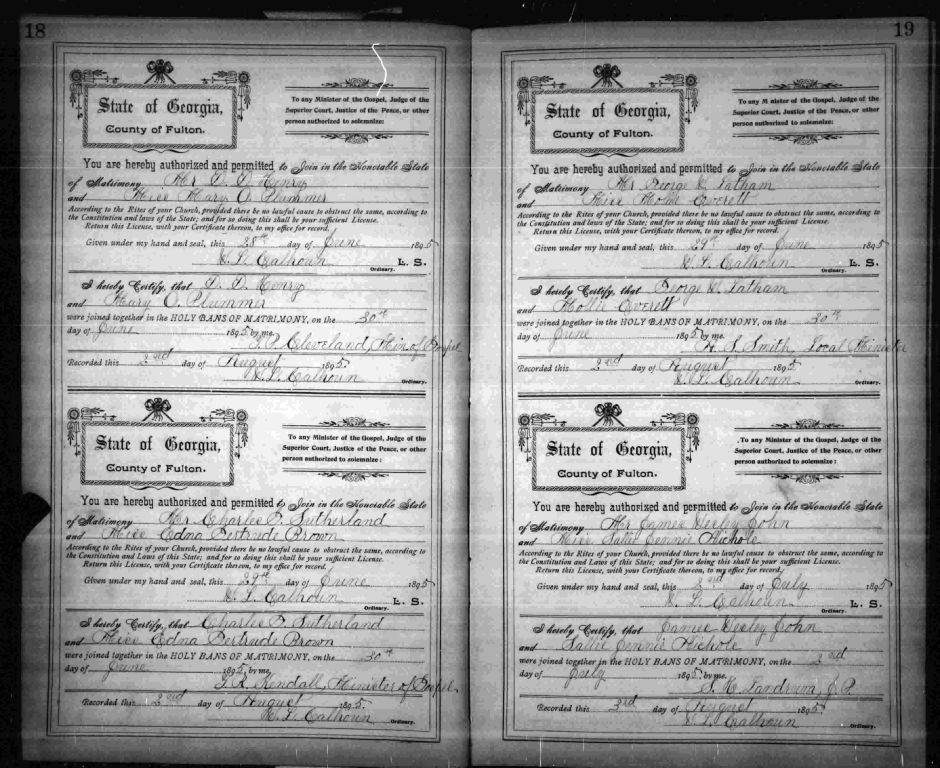 18
State of Georgia,
County of Fulton.
To any Minister of the Gospel, Judge of the
Superior Court, Justice of the Peace, or other
person authorized to solemnize:
You are hereby authorized and permitted to Join in the Honorable State
of Matrimony Mr D. D. Henry
and Miss Mary O. Plummer
According to the Rites of your Church, provided there be no lawful cause to obstruct the same, according to
the Constitution and laws of the State; and for so doing this shall be your sufficient License.
Return this License, with your Certificate thereon, to my office for record.
Given under my hand and seal, this 28th day of June 1895
W. L. Calhoun L. S.
Ordinary.
I hereby Certify, that D. D. Henry
and Mary O. Plummer
were joined together in the HOLY BANS OF MATRIMONY, on the 30th
day of June 1895 by me.
Cleveland, Min of Gospel
Recorded this 2nd day of August 1895
W. L. Calhoun
Ordinary.
State of Georgia,
County of Fulton.
To any Minister of the Gospel, Judge of the
Superior Court, Justice of the Peace, or other
person authorized to solemnize:
You are hereby authorized and permitted to Join in the Honorable State
of Matrimony Mr Charles P. Sutherland
and Miss Edna Gertrude Brown
According to the Rites of your Church, provided there be no lawful cause to obstruct the same, according to
the Constitution and Laws of this State; and for so doing this shall be your sufficient License.
Return this License, with your Certificate thereon, to my office for record.
Given under my hand and seal, this 29th day of June 1895
W. L. Calhoun L. S.
Ordinary.
I hereby Certify, that Charles P. Sutherland
and Miss Edna Gertrude Brown
were joined together in the HOLY BANS OF MATRIMONY, on the 30th
day of June 1895 by me.
T. R. Kendall, Minister of Gospel
Recorded this 2nd day of August 1895
W. L. Calhoun
Ordinary.
19
State of Georgia,
County of Fulton.
To any Minister of the Gospel, Judge of the
Superior Court, Justice of the Peace, or other
person authorized to solemnize:
You are hereby authorized and permitted to Join in the Honorable State
of Matrimony Mr George W. Latham
and Miss Mollie Everett
According to the Rites of your Church, provided there be no lawful cause to obstruct the same, according to
the Constitution and laws of the State; and for so doing this shall be your sufficient License.
Return this License, with your Certificate thereon, to my office for record.
Given under my hand and seal, this 29th day of June 1895
W. L. Calhoun L. S.
Ordinary.
I hereby Certify, that George W. Latham
and Mollie Everett
were joined together in the HOLY BANS OF MATRIMONY, on the 30th
day of June 1895 by me.
H. S. Smith, Local Minister
Recorded this 2nd day of August 1895
W. L. Calhoun
Ordinary.
State of Georgia,
County of Fulton.
To any Minister of the Gospel, Judge of the
Superior Court, Justice of the Peace, or other
person authorized to solemnize:
You are hereby authorized and permitted to Join in the Honorable State
of Matrimony Mr James John
and Miss Sallie Jennie Nichols
According to the Rites of your Church, provided there be no lawful cause to obstruct the same, according to
the Constitution and Laws of this State; and for so doing this shall be your sufficient License.
Return this License, with your Certificate thereon, to my office for record.
Given under my hand and seal, this day of July 1895
W. L. Calhoun L. S.
Ordinary.
I hereby Certify, that James John
and Sallie Jennie Nichols
were joined together in the HOLY BANS OF MATRIMONY, on the
day of July 1895 by me.
S. H. Landrum, J. P.
Recorded this 3rd day of August 1895
W. L. Calhoun
Ordinary.